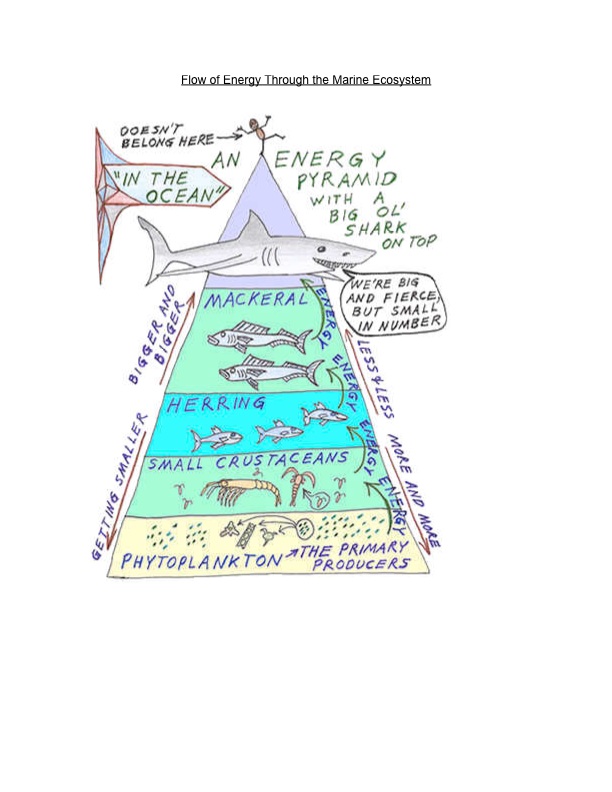 Flow of Energy Through the Marine Ecosystem
DOESN'T
BELONG HERE
AN ENERGY
PYRAMID
WITH A
BIG OL'
SHARK
ON TOP
"IN THE
OCEAN"
WE'RE BIG
AND FIERCE,
BUT SMALL
IN NUMBER
BIGGER AND
BIGGER
GETTING SMALLER
LESS & LESS
MORE AND MORE
MACKERAL
ENERGY
ENERGY
HERRING
ENERGY
SMALL CRUSTACEANS
ENERGY
PHYTOPLANKTON
THE PRIMARY
PRODUCERS